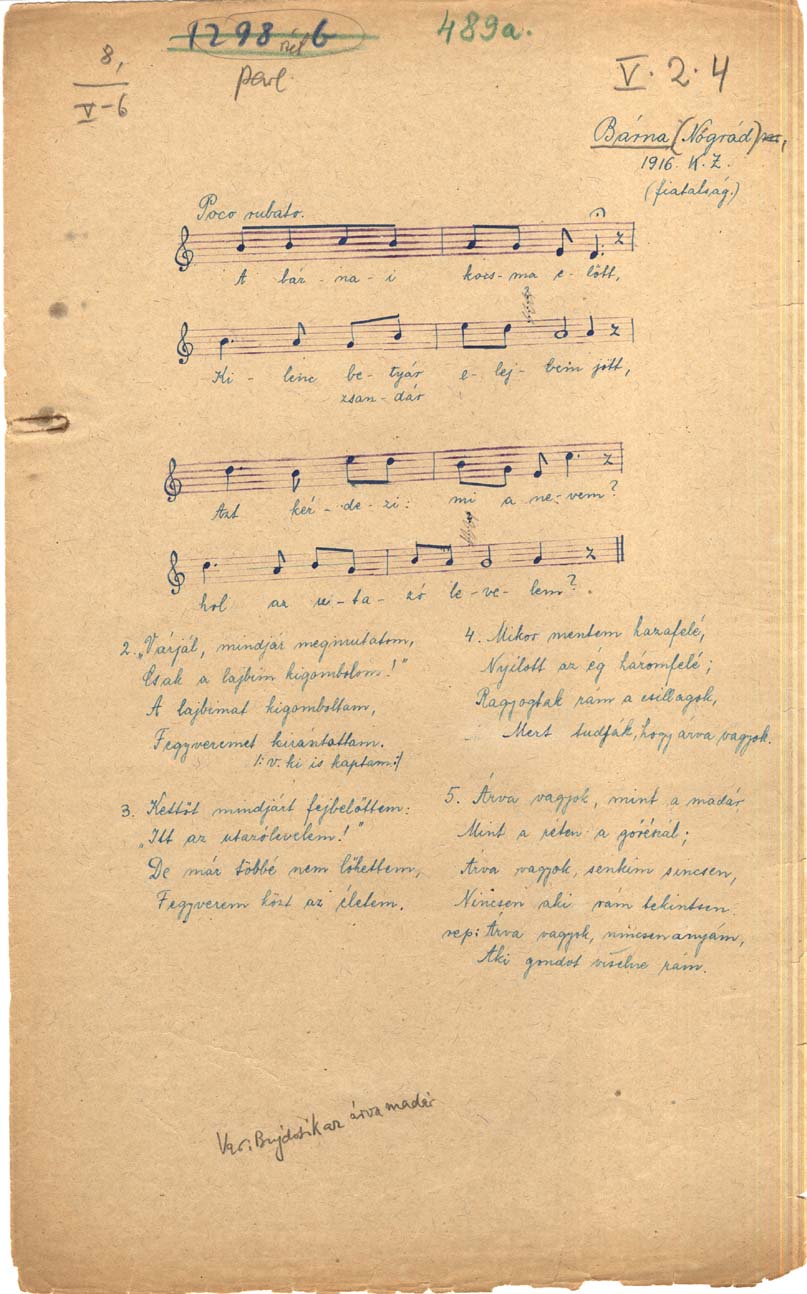 1298 b
489a.
8,
V-6
V. 2. 4
Bárna (Nógrád),
1916. K. Z.
(fiatalság.)
Poco rubato.
A bár - na - i kocs - ma e - lőtt,
Ki - lenc be - tyár e - lej - bem jött,
zsan - dár
Azt kér - de - zi: mi a ne - vem?
hol az u - ta - zó le - ve - lem?
2. „Várjál, mindjár megmutatom,
Csak a lajbim kigombolom!"
A lajbimat kigomboltam,
Fegyveremet kirántottam.
/: v. ki is kaptam :/
3. Kettőt mindjárt fejbelőttem:
„Itt az utazólevelem!"
De már többé nem lőhettem,
Fegyverem közt az életem.
4. Mikor mentem hazafelé,
Nyilott az ég háromfelé;
Ragyogtak rám a csillagok,
Mert tudták, hogy árva vagyok.
5. Árva vagyok, mint a madár,
Mint a réten a górészál;
Árva vagyok, senkim sincsen,
Nincsen aki rám tekintsen.
rep: Árva vagyok, nincsen anyám,
Aki gondot viselne rám.
Var: Bujdosik az árva madár